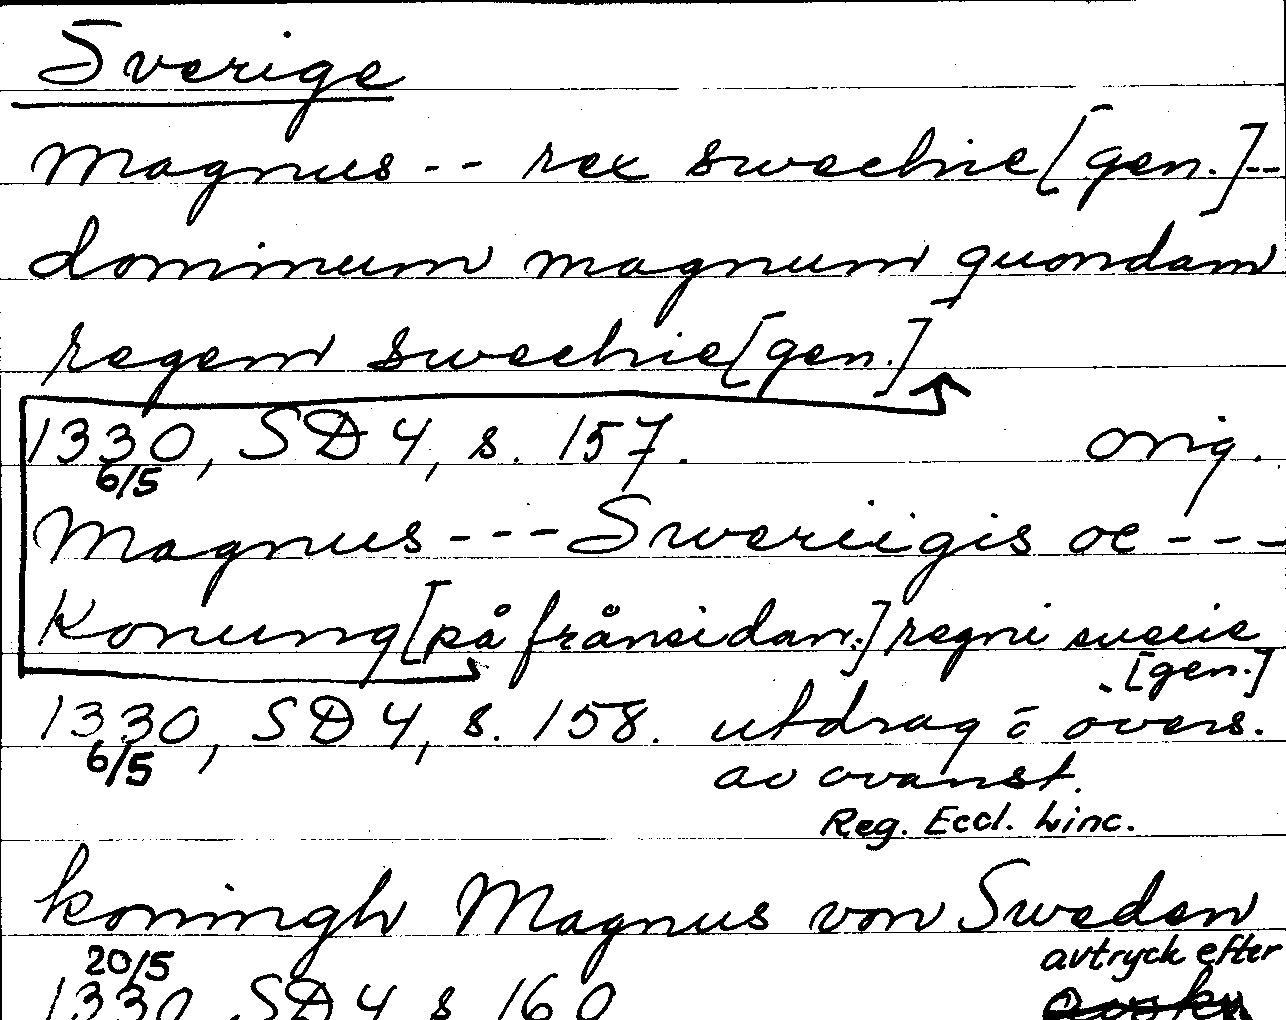 Sverige
Magnus -- rex swechie [gen.] --
dominum magnum quondam
regem swechie [gen.]
1330, SD 4, s. 157. orig.
6/5
Magnus --- Sweriigis oc ---
Konung [på frånsidan:] regni suecie
[gen.]
1330, SD 4, s. 158. utdrag o övers.
6/5
av ovanst.
Reg. Eccl. Linc.
koningh Magnus von Sweden
20/5
avtryck efter
1330, SD 4 s 160